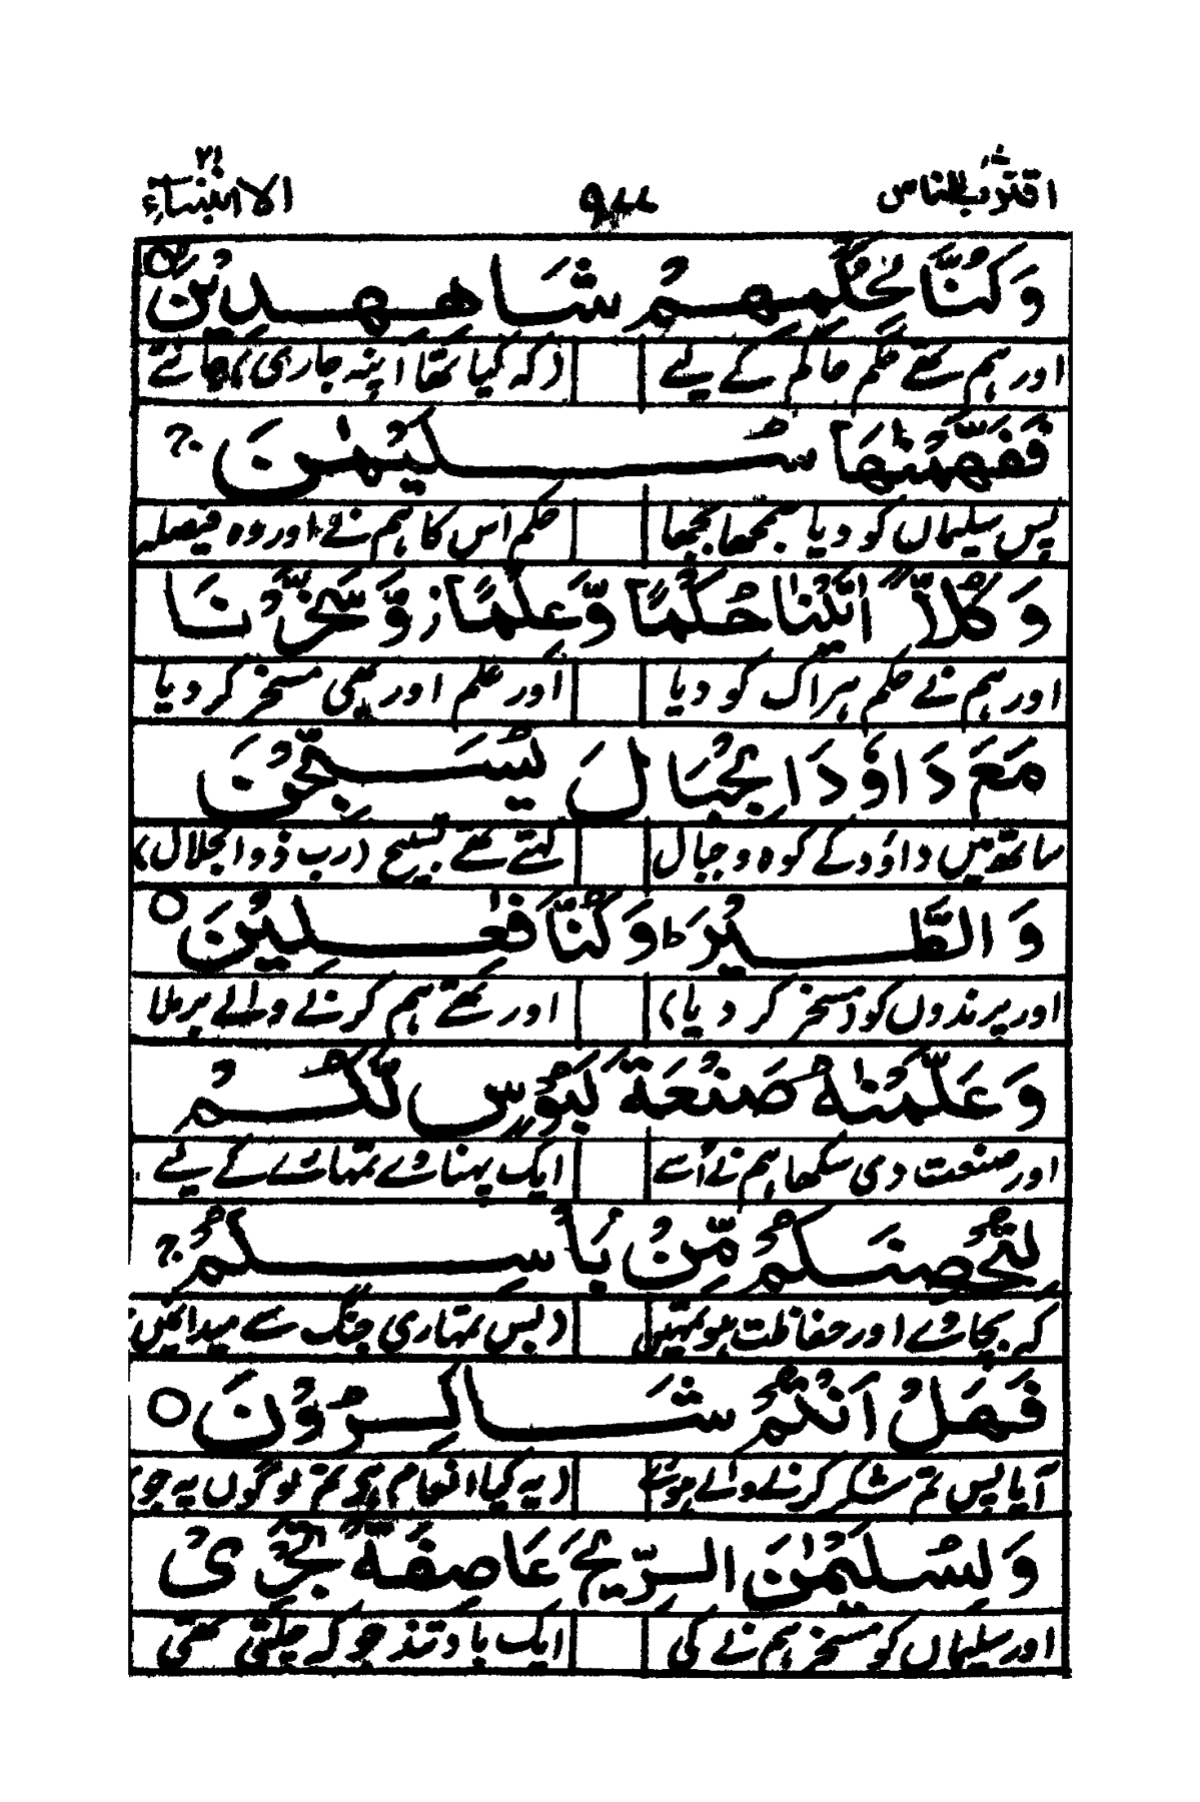 اقترب للناس ۱۷ ۹۷۷ الانبیاء ۲۱
وَكُنَّا لِحُكْمِهِمْ شَاهِدِيْنَ ○
اور ہم تھے حکم حاکم کے لیے (کہ کیا تھا اپنہ جاری
فَفَهَّمْنٰهَا سُلَيْمٰنَ ج
پس سلیماں کو دیا سمجھا بجھا حکم اس کا ہم نے اور وہ فیصلہ
وَكُلًّا اٰتَيْنَا حُكْمًا وَّعِلْمًا ز وَّسَخَّرْنَا
اور ہم نے حکم ہر اک کو دیا اور علم اور بھی مسخر کر دیا
مَعَ دَاوٗدَ الْجِبَالَ يُسَبِّحْنَ
ساتھ میں داؤد کے کوہ و جبال کہتے تھے تسبیح (رب ذوالجلال)
وَالطَّيْرَ ط وَكُنَّا فٰعِلِيْنَ ○
اور پرندوں کو (مسخر کر دیا) اور تھے ہم کرنے والے برملا
وَعَلَّمْنٰهُ صَنْعَةَ لَبُوْسٍ لَّكُمْ
اور صنعت دی سکھا ہم نے اُسے ایک پہناوے تمہارے کے لیے
لِتُحْصِنَكُمْ مِّنْ بَاْسِكُمْ ج
کہ بچاوے اور حفاظت ہو تمہیں (بس تمہاری جنگ سے میدان میں
فَهَلْ اَنْتُمْ شَاكِرُوْنَ ○
آیا پس تم شکر کرنے والے ہوئے (یہ کیا انعام ہم نے تم لوگوں پہ جو
وَلِسُلَيْمٰنَ الرِّيْحَ عَاصِفَةً تَجْرِيْ
اور سلیماں کو مسخر ہم نے کی ایک باد تند جو کہ چلتی تھی